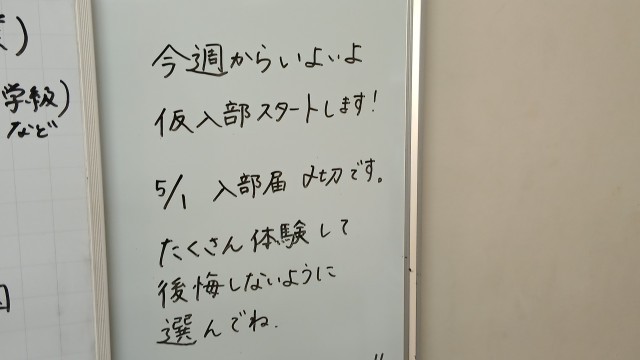 学級)
など
今週からいよいよ
仮入部スタートします!
5/1 入部届 〆切です。
たくさん体験して
後悔しないように
選んでね.